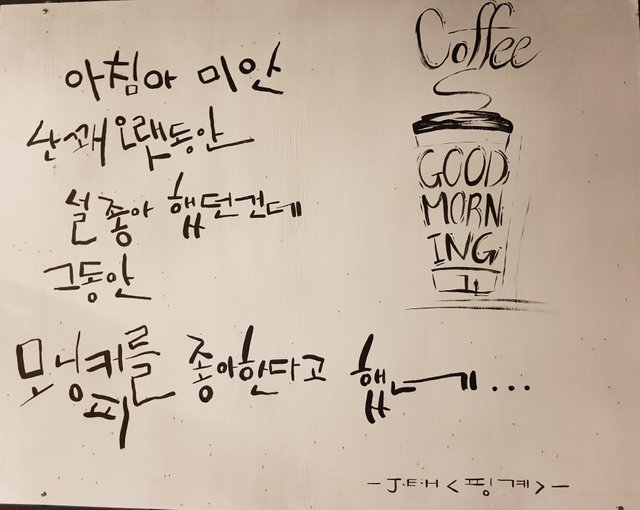 아침아 미안
난 꽤 오랫동안
널 좋아 했던건데
그동안
모닝커피를 좋아한다고 했네...
Coffee
GOOD
MORN
ING
- J.E.H <핑계> -